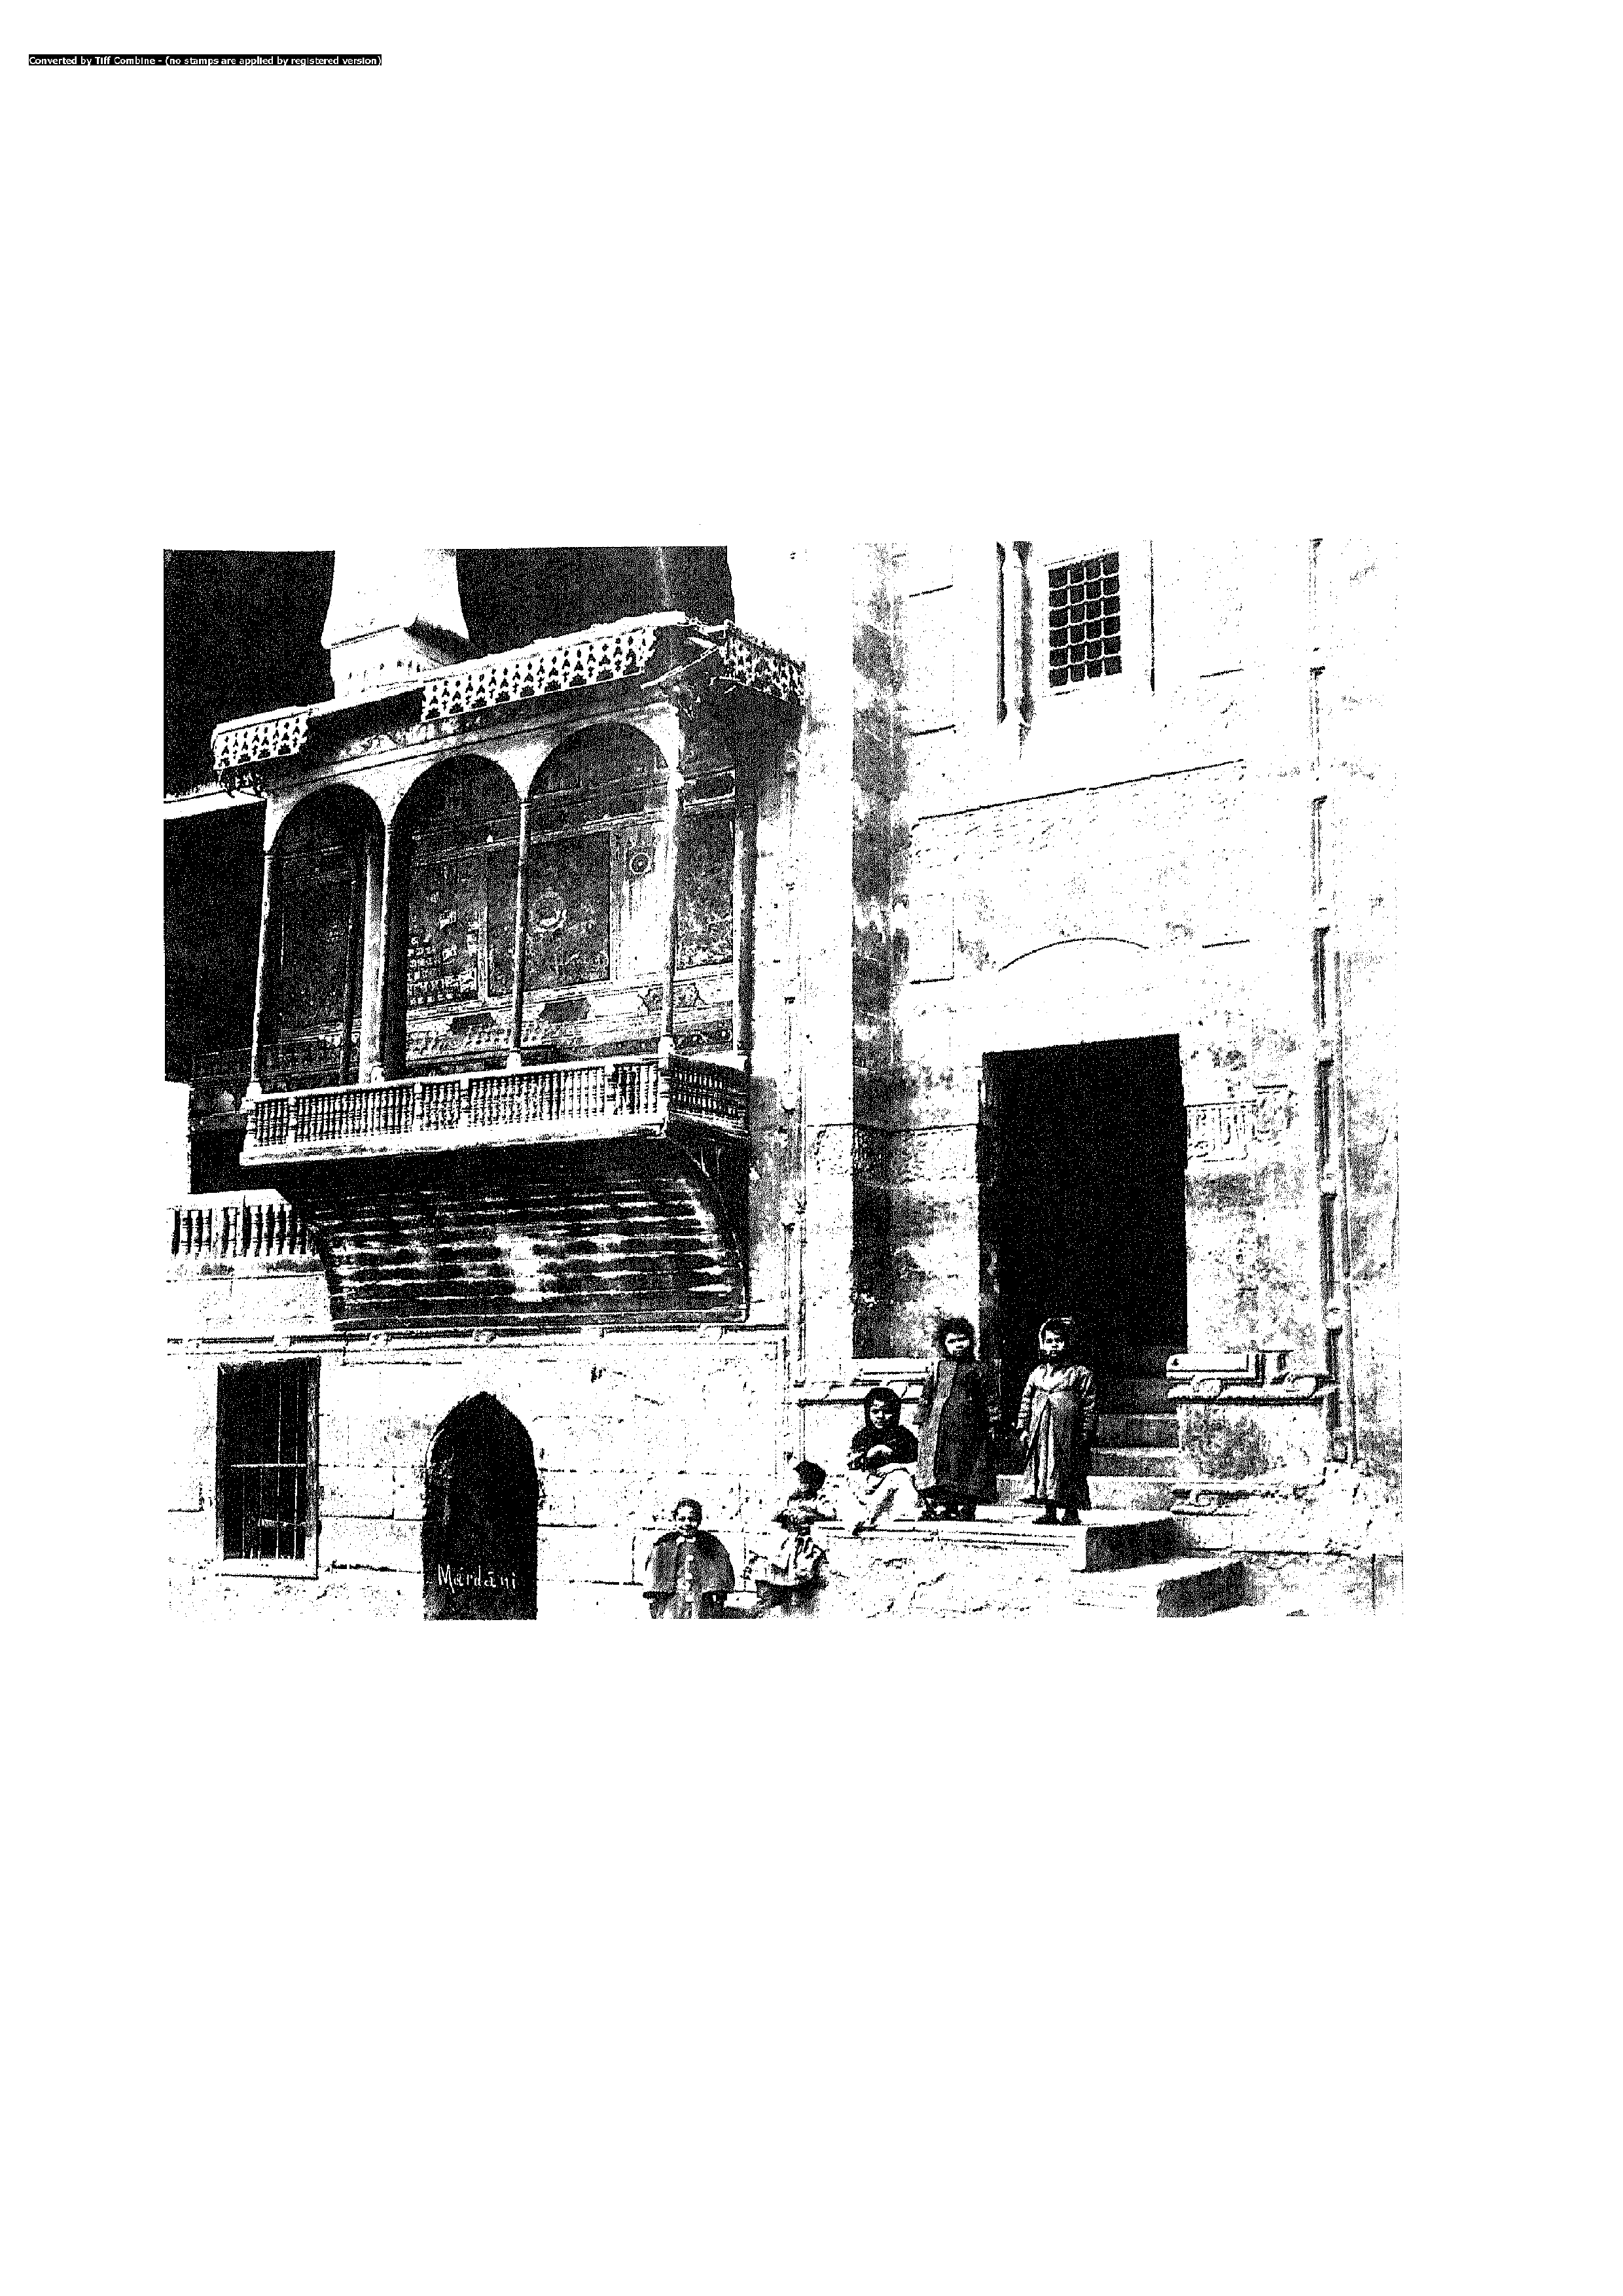 Converted by Tiff Combine - (no stamps are applied by registered version)
Mardani